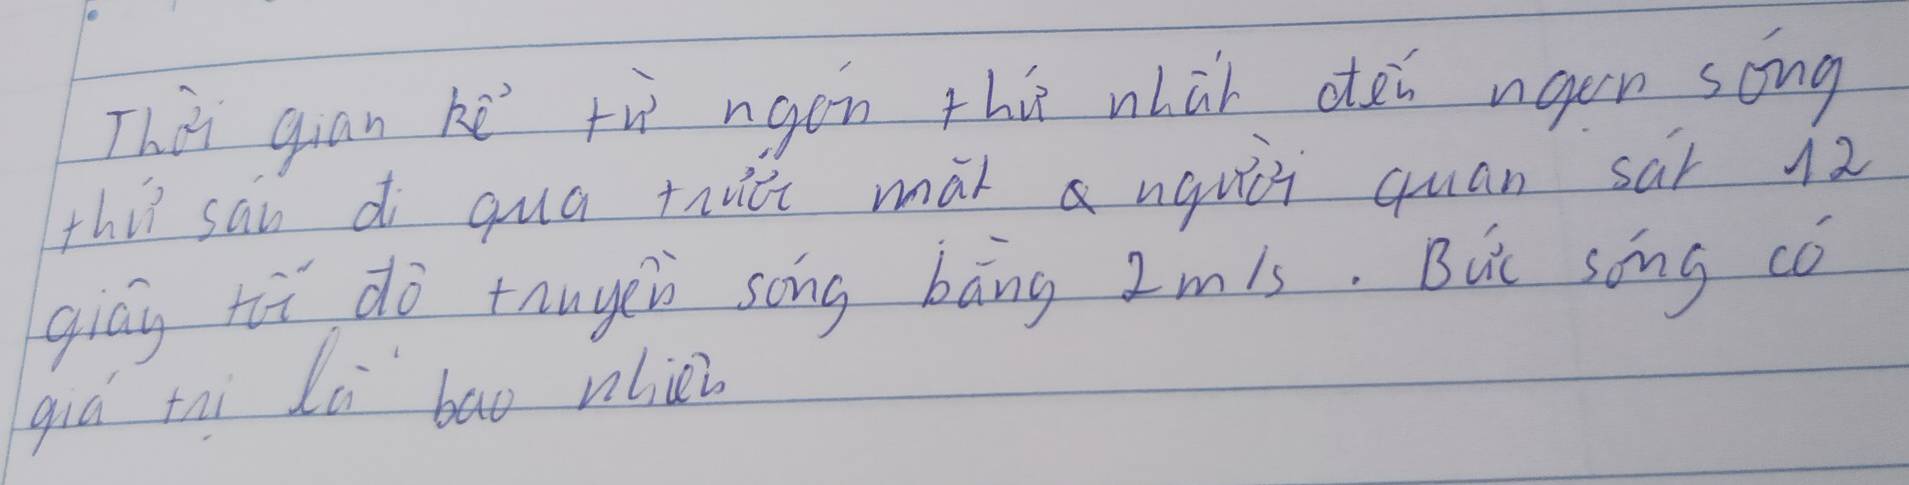 Thời gian kể từ ngọn thứ nhất đến ngọn sóng
thứ sáu đi qua trước mắt người quan sát 12
giây tốc độ truyền sóng bằng 2m/s. Bước sóng có
giá trị là bao nhiêu